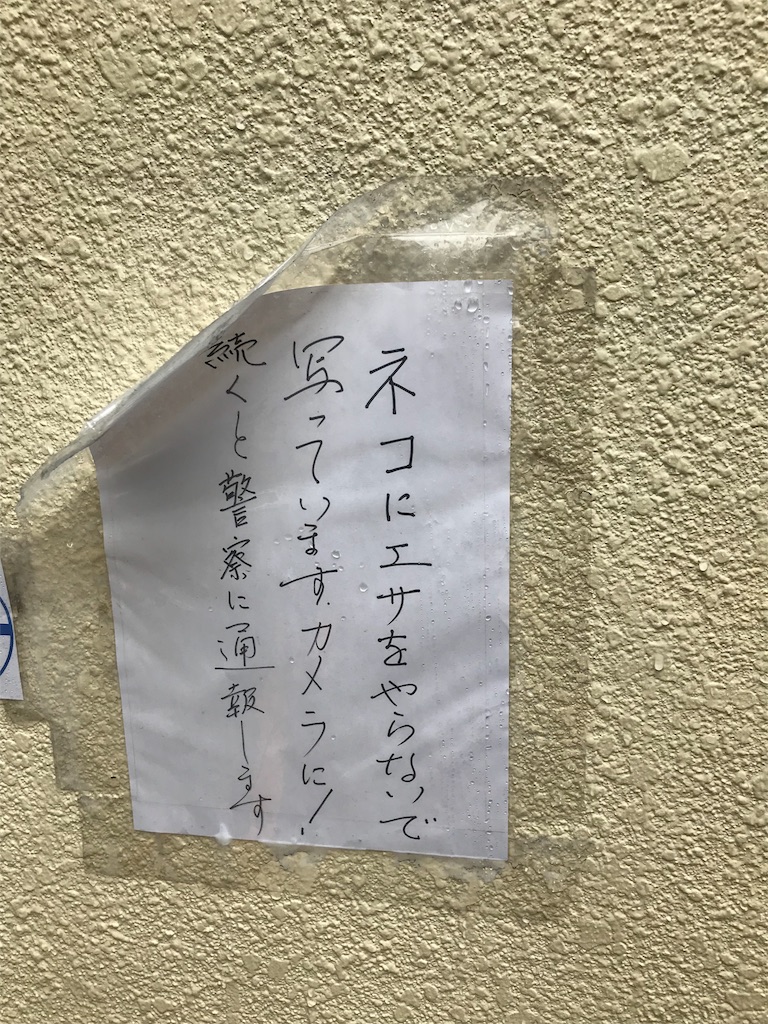 ネコにエサをやらないで
写っています.カメラに!
続くと警察に通報します